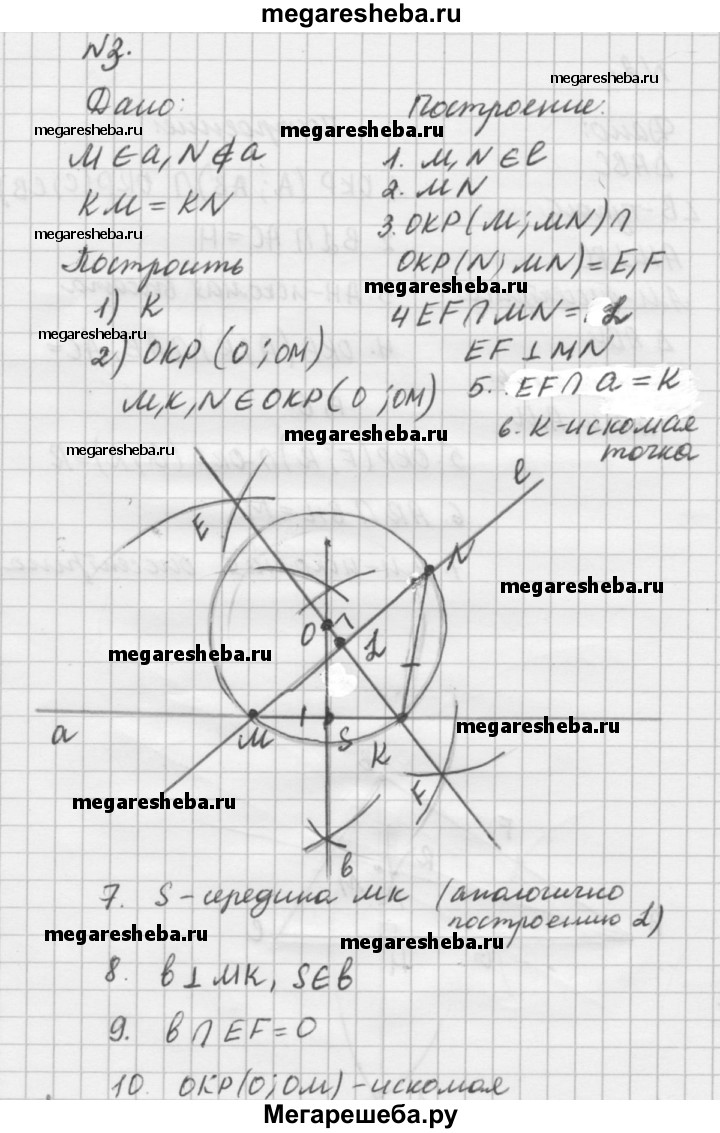 megaresheba.ru
№3.
Дано:
megaresheba.ru
M ∈ a, N ∉ a
KM = KN
megaresheba.ru
Построить
1) K
megaresheba.ru
2) ОКР (O; OM)
M, K, N ∈ ОКР (O; OM)
megaresheba.ru
Построение.
megaresheba.ru
megaresheba.ru
1. M, N ∈ l
2. MN
3. ОКР (M; MN) ∩
ОКР (N; MN) = E, F
megaresheba.ru
4 EF ∩ MN = L
EF ⊥ MN
5. EF ∩ a = K
6. K - искомая
точка
megaresheba.ru
megaresheba.ru
l
E
N
megaresheba.ru
O
L
megaresheba.ru
a
M
S
K
megaresheba.ru
F
megaresheba.ru
b
7. S - середина MK (аналогично
построению L)
megaresheba.ru
megaresheba.ru
8. b ⊥ MK, S ∈ b
9. b ∩ EF = O
10. ОКР (O; OM) - искомая
Мегарешеба.ру